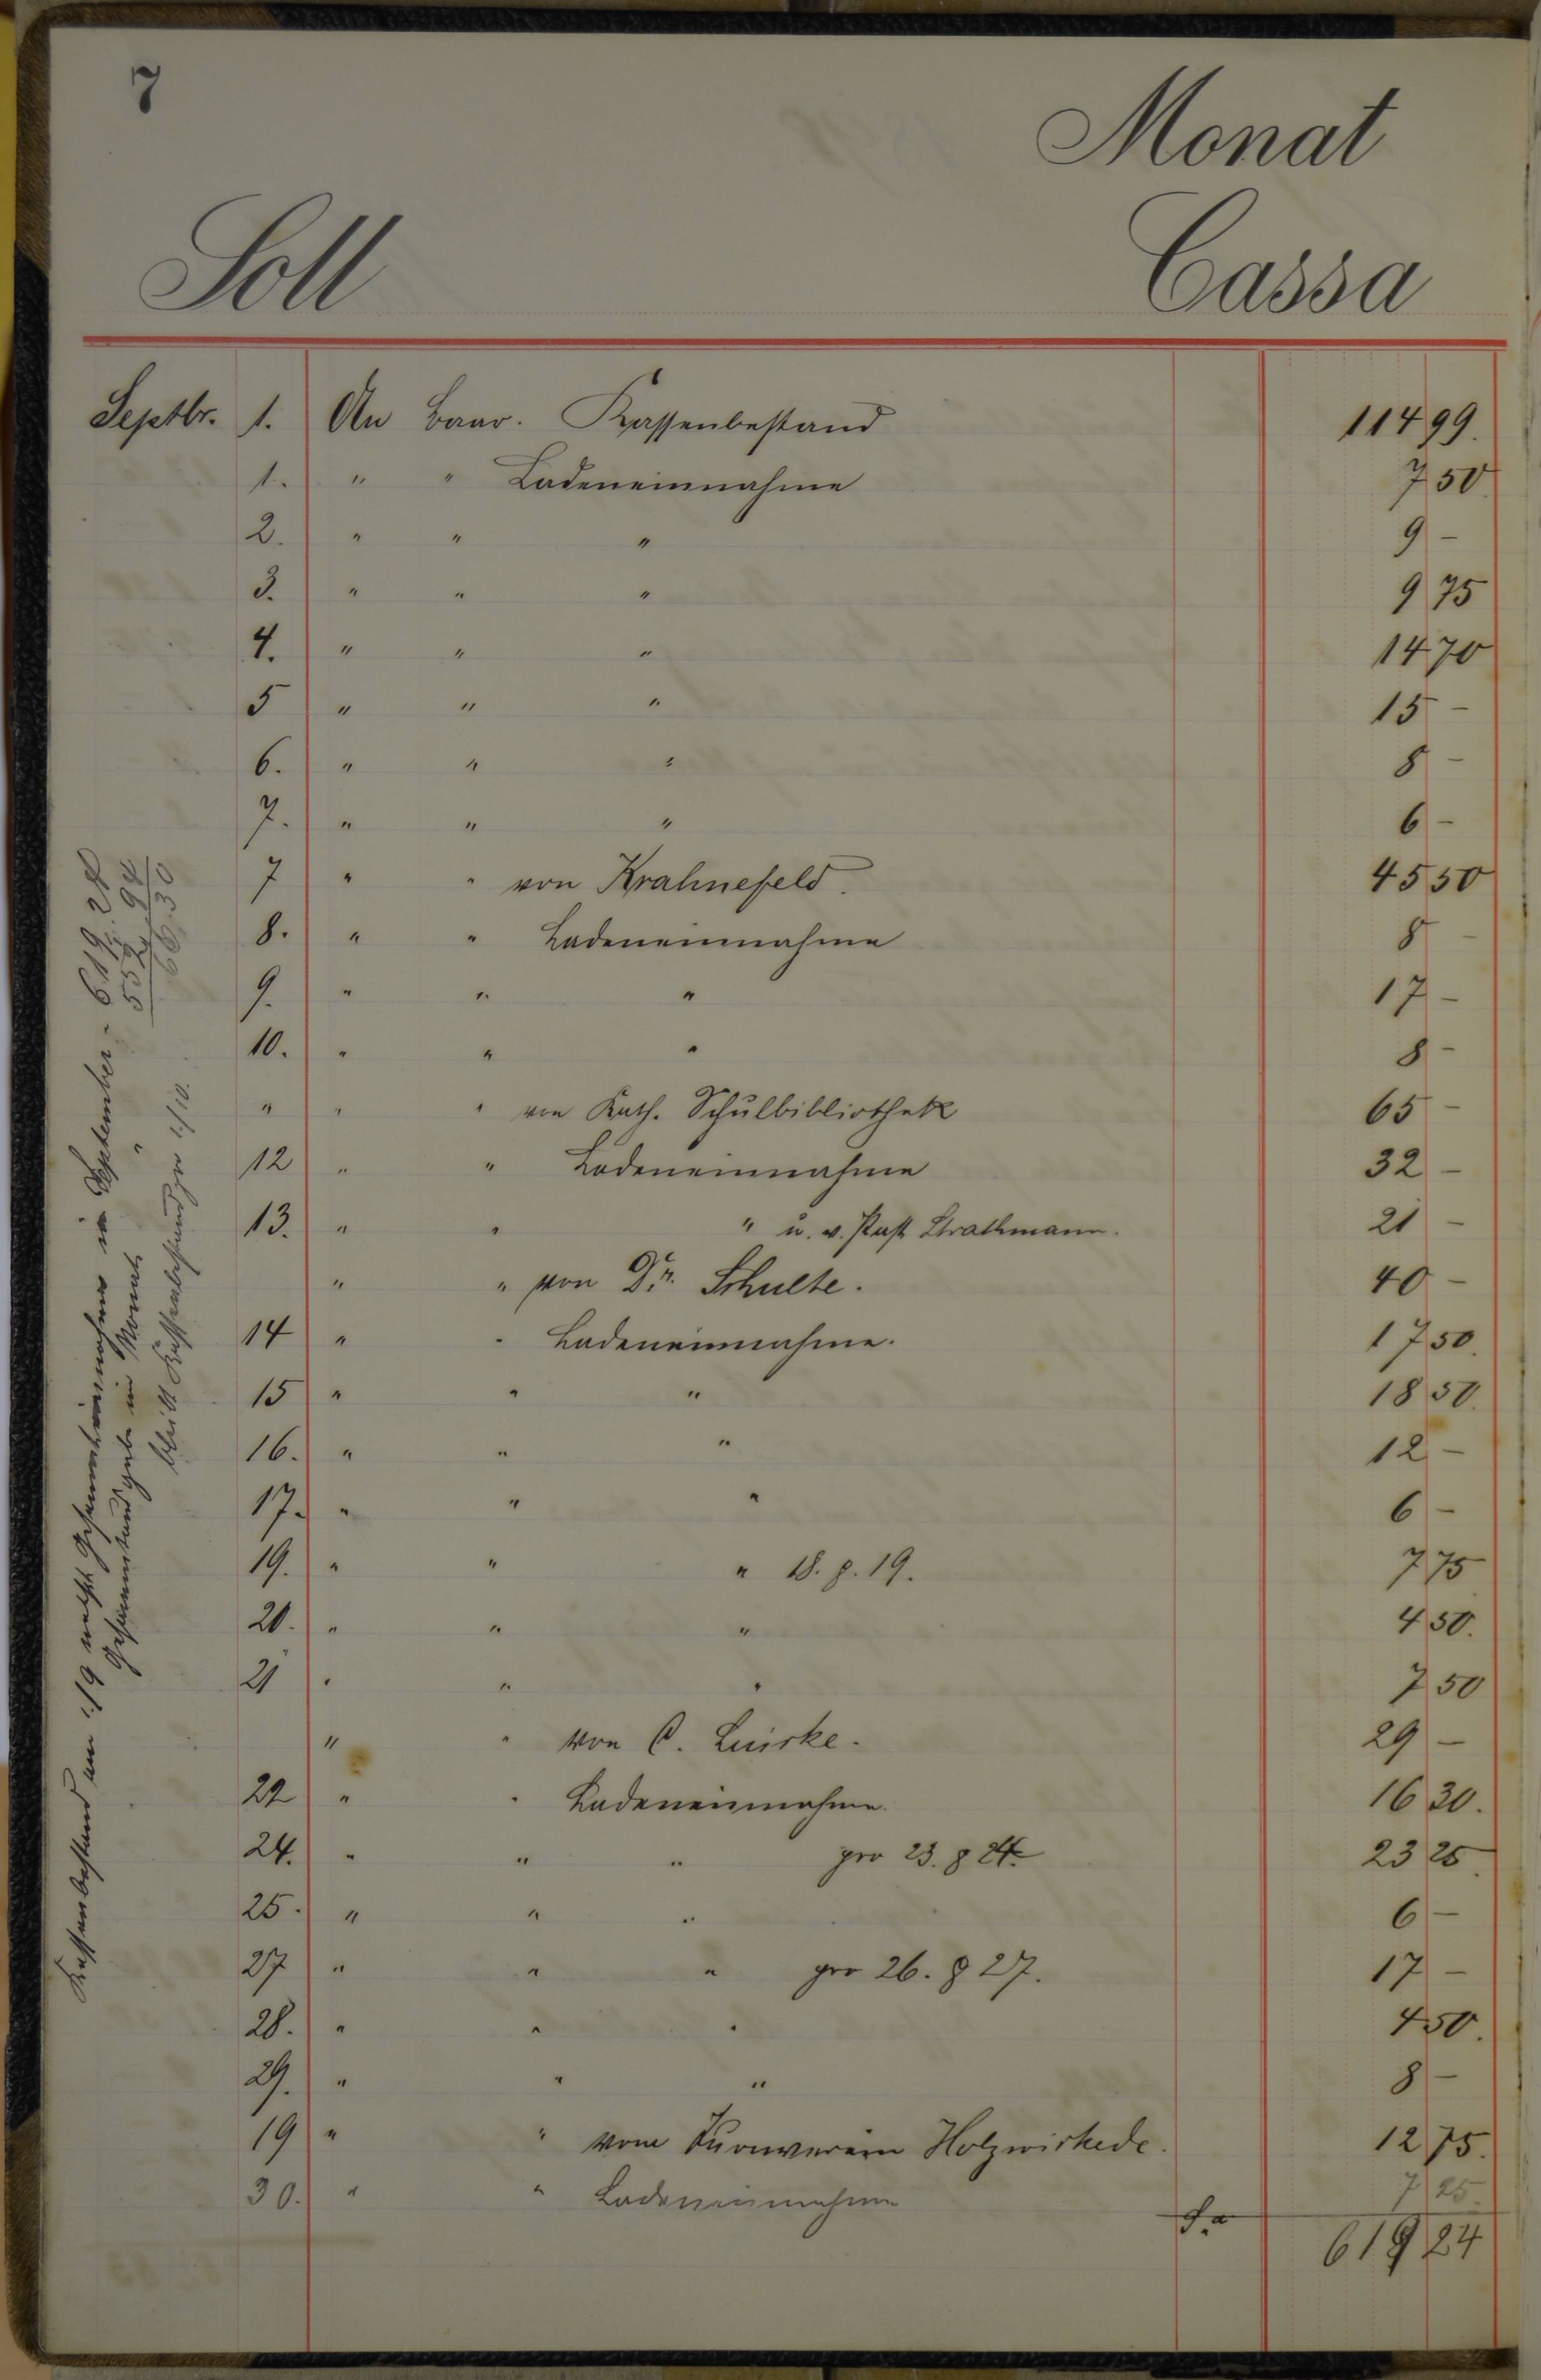 7
Monat
Soll Cassa
Septbr. 1. An Baar. Kassenbestand 114 99.
1. " " Ladeneinnahme 7 50
2. " " " 9 -
3. " " " 9 75
4. " " " 14 70
5 " " " 15 -
6. " " " 8 -
7. " " " 6 -
7 " " von Krahnefeld. 45 50
8. " " Ladeneinnahme 8 -
9. " " " 17 -
10. " " " 8 -
" " " von Kath. Schulbibliothek 65 -
12 " " Ladeneinnahme 32 -
13. " " " u. v. Past Strathmann. 21 -
" " von Dr. Schulte. 40 -
14 " " Ladeneinnahme. 17 50.
15 " " " 18 50.
16. " " " 12 -
17. " " " 6 -
19. " " " 18. & 19. 7 75
20. " " " 4 50.
21 " " " 7 50
" " von C. Luirke. 29 -
22 " " Ladeneinnahme. 16 30.
24. " " " pro 23. & 24. 23 25.
25. " " " 6 -
27 " " " pro 26. & 27. 17 -
28. " " " 4 50.
29. " " " 8 -
19 " " vom Turnverein Holzwickede. 12 75.
30. " " Ladeneinnahme 7 25.
Sa 619 24
Kassenbestand am 1/9 nebst Gesammteinnahme im September - 619. 24
Gesammtausgabe im Monat " 552. 94
bleibt Kassenbestand pro 1/10. 66. 30